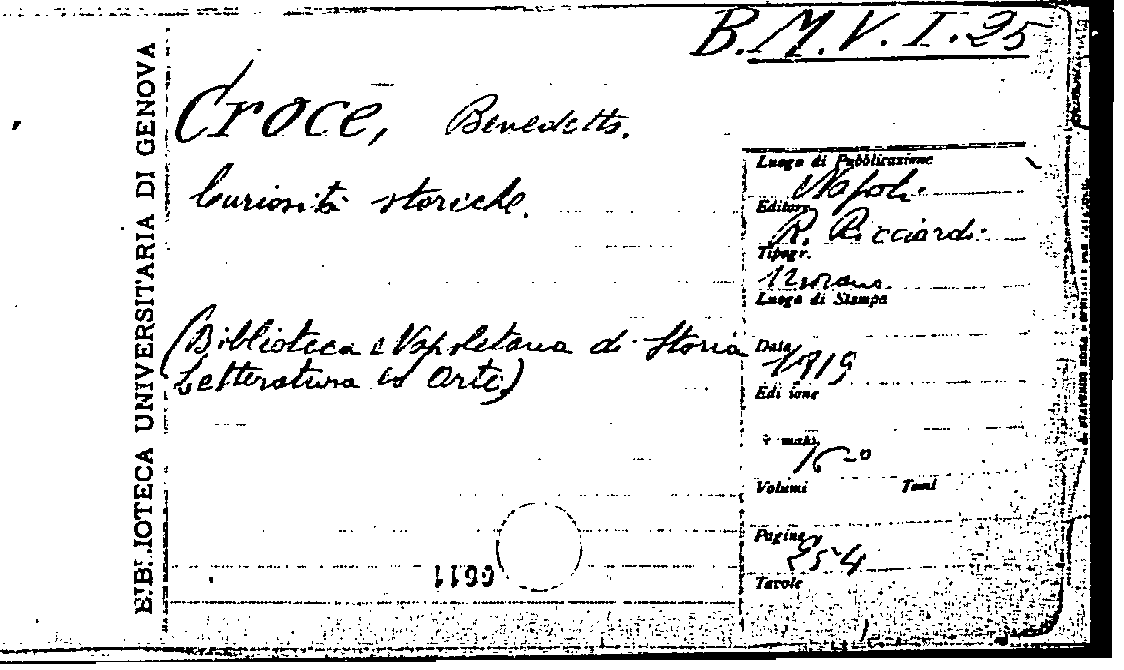 B.M.V.I.25
BIBLIOTECA UNIVERSITARIA DI GENOVA
Croce, Benedetto.
Curiosità storiche.
(Biblioteca Napoletana di Storia
Letteratura ed Arte)
Luogo di Pubblicazione
Napoli
Editore
R. Ricciardi
Tipogr.
Morano
Luogo di Stampa
Data
1919
Edizione
16°
Volumi Tomi
Pagine
254
Tavole